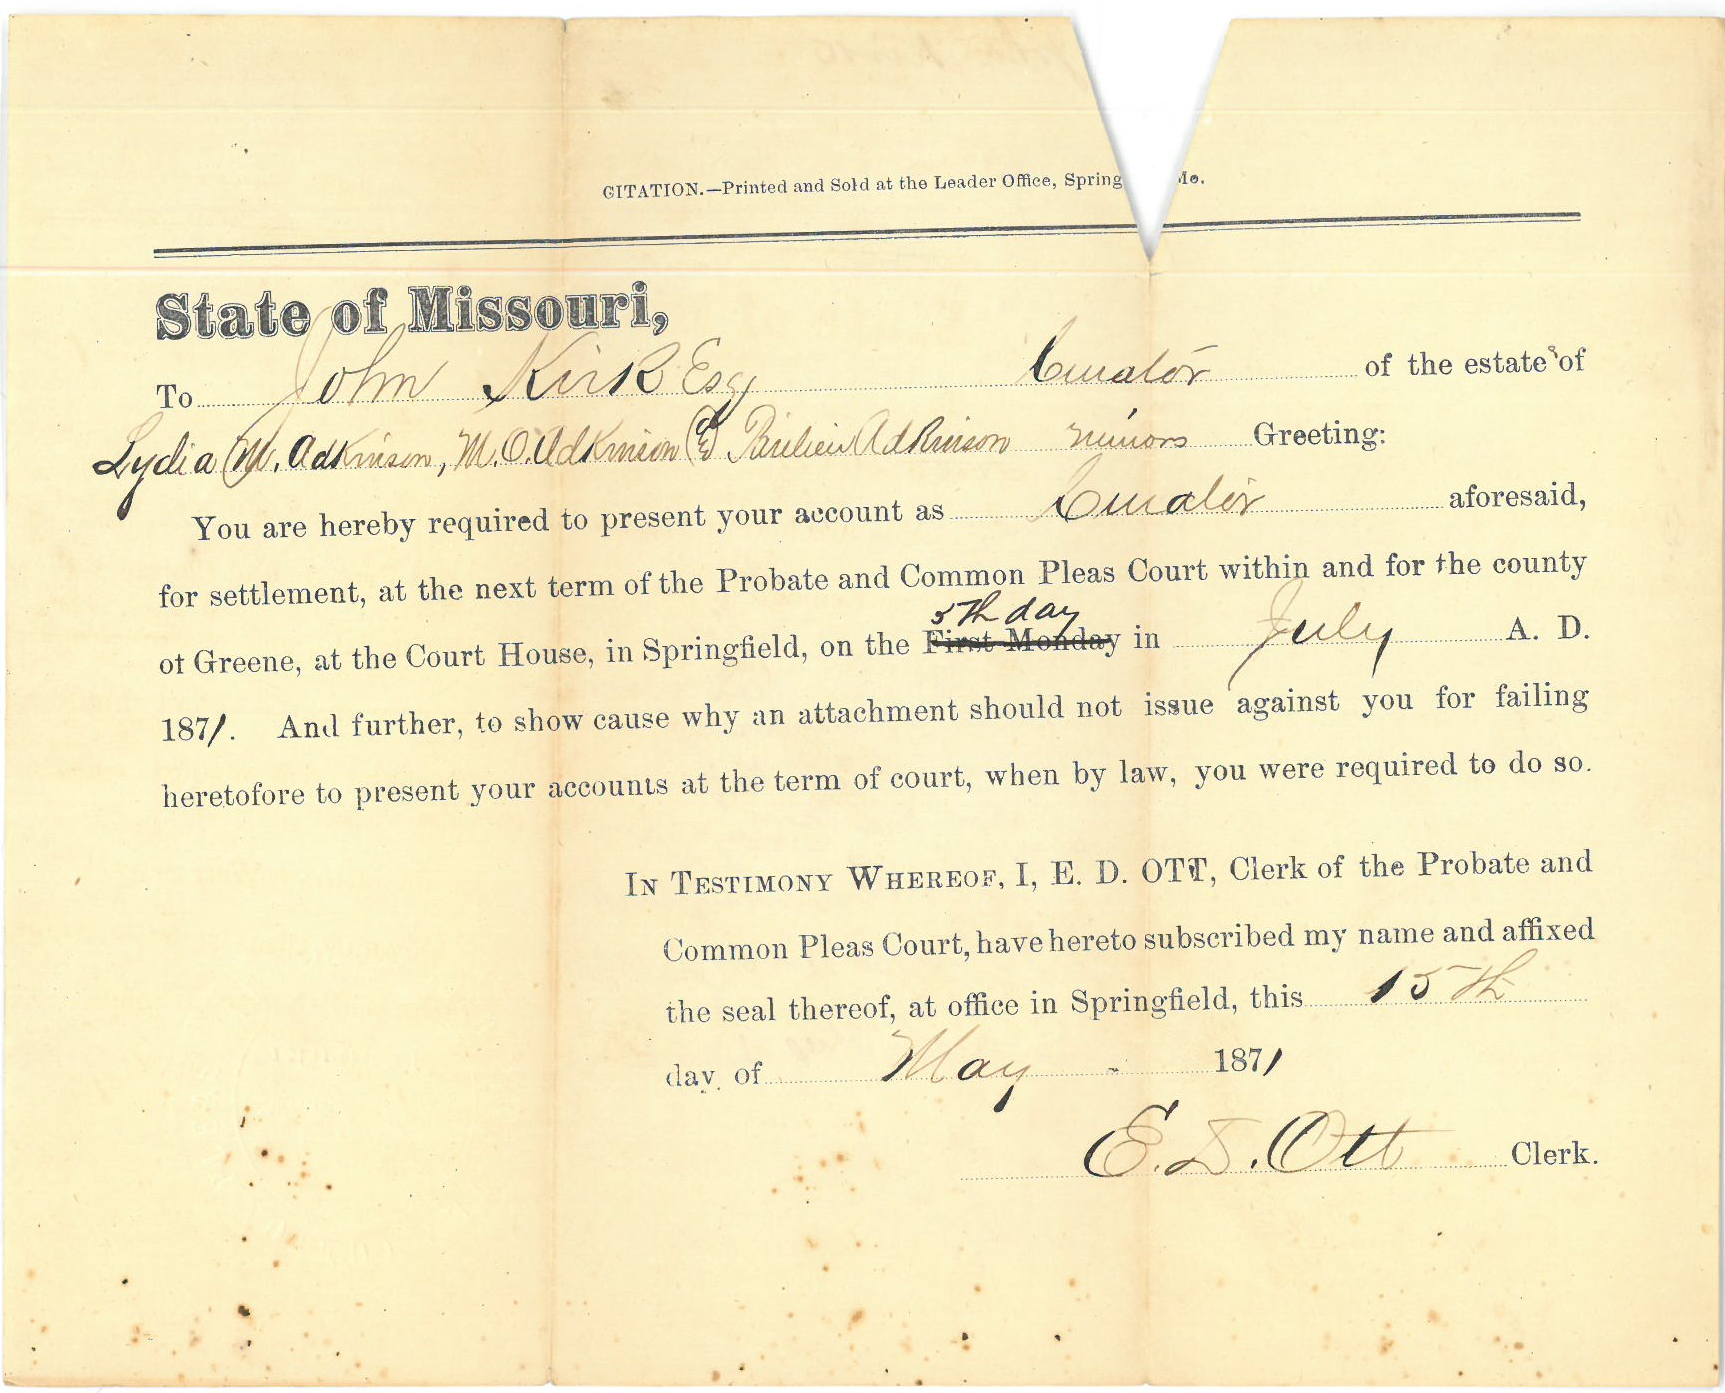 CITATION.—Printed and Sold at the Leader Office, Spring Mo.
State of Missouri,
To John Kirk Esq Curator of the estate s of
Lydia M. Adkinson, M. O. Adkinson & Adkinson minors Greeting:
You are hereby required to present your account as Curator aforesaid,
for settlement, at the next term of the Probate and Common Pleas Court within and for the county
5th day
of Greene, at the Court House, in Springfield, on the First Monday in July A. D.
1871. And further, to show cause why an attachment should not issue against you for failing
heretofore to present your accounts at the term of court, when by law, you were required to do so.
IN TESTIMONY WHEREOF, I, E. D. OTT, Clerk of the Probate and
Common Pleas Court, have hereto subscribed my name and affixed
the seal thereof, at office in Springfield, this 15th
day of May 1871
E. D. Ott Clerk.